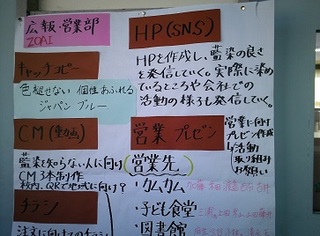 広報・営業部
ZOAI
キャッチコピー
色褪せない 個性あふれる
ジャパン ブルー
CM(動画)
藍染を知らない人に向け
CM 3本制作
校内、QRで地域に向け?
チラシ
注文に向けてのチラシ
HP(SNS)
HPを作成し、藍染の良さ
を発信していく。実際に染め
ているところや会社での
活動の様子も発信していく。
営業 プレゼン
営業に向け
プレゼン作成
活動
取り組み
お願い
営業先
・クムクム
・子ども食堂
・図書館